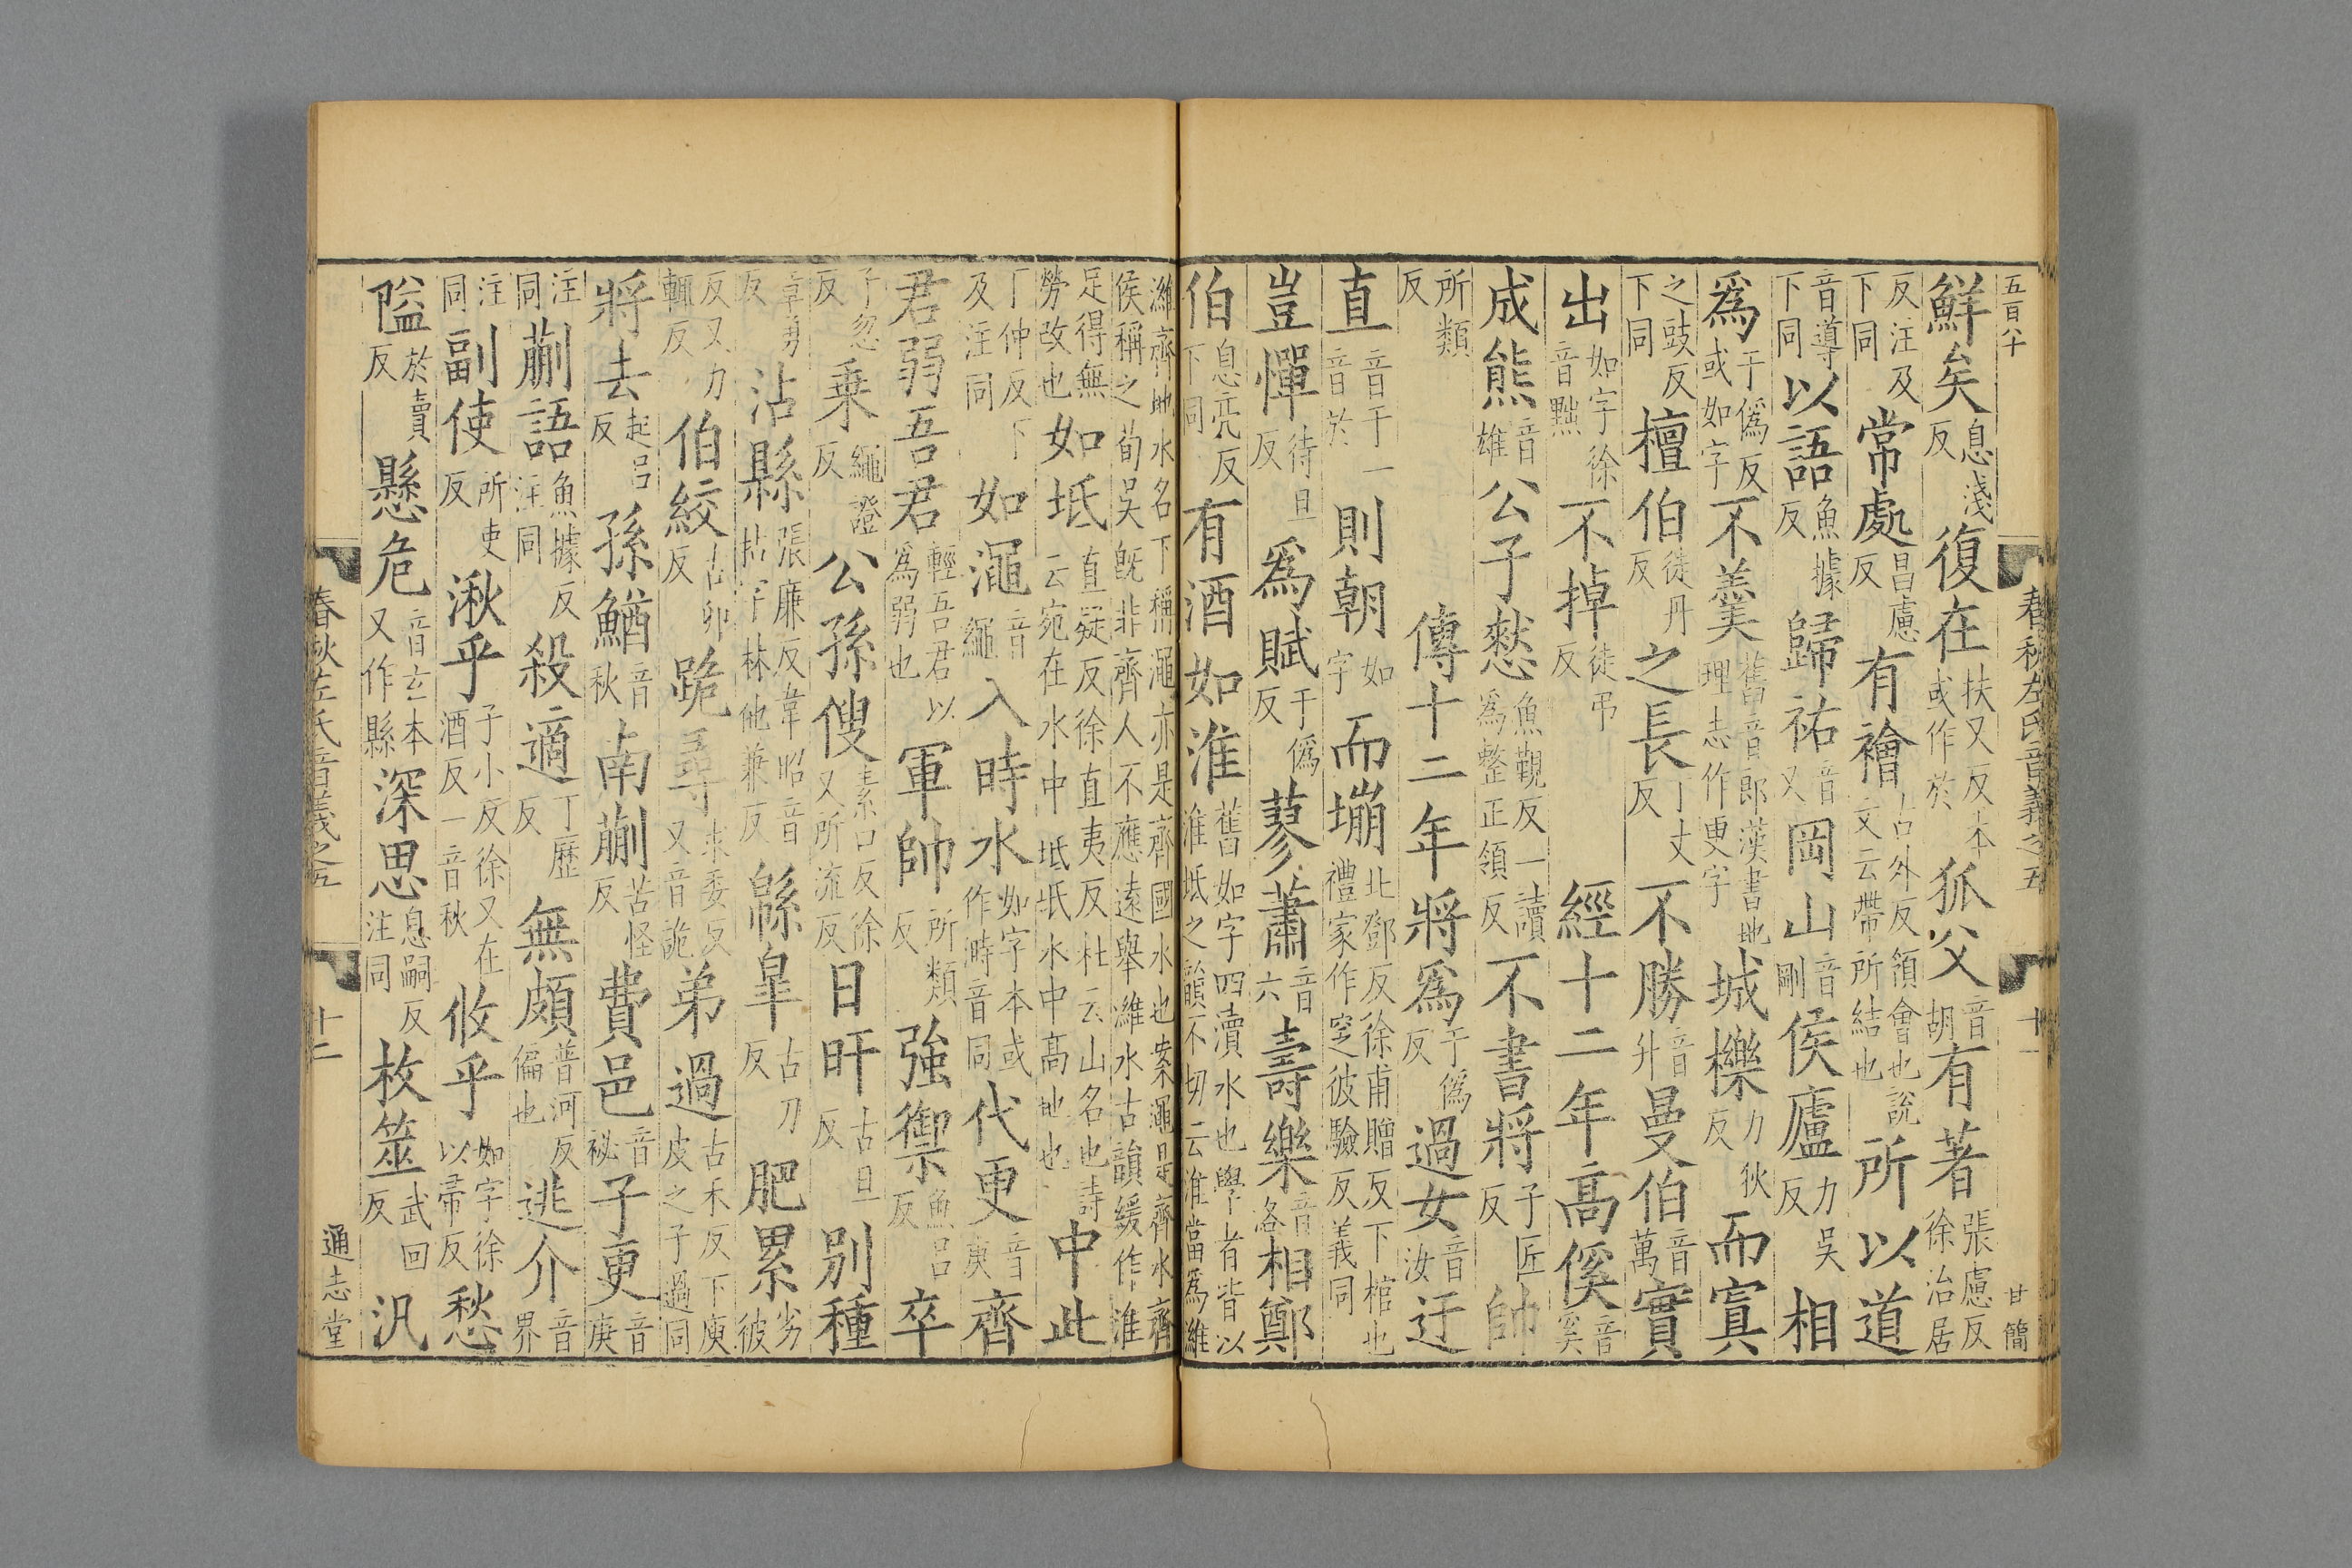 五百八十 春秋左氏音義之五 十一 甘簡
鮮矣息淺反復在扶又反本或作於狐父音胡有著張慮反徐治居
反注及下同常處昌慮反有襘古外反領會也說文云帶所結也所以道
音導下同以語魚據反歸祐音又岡山音剛侯廬力吳反相
爲于僞反或如字不羹舊音郎漢書地理志作更字城櫟力狄反而寘
之豉反下同檀伯徒丹反之長丁丈反不勝音升曼伯音萬實
出如字徐音黜不掉徒弔反 經十二年高傒音奚
成熊音雄公子憖魚覲反一讀爲整正領反不書將子匠反帥
所類反 傳十二年將爲于僞反過女音汝迂
直音于一音於則朝如字而塴北鄧反徐甫贈反下棺也禮家作窆彼驗反義同
豈憚待旦反爲賦于僞反蓼蕭音六壽樂音洛相鄭
伯息亮反下同有酒如淮舊如字四瀆水也學者皆以淮坻之韻不切云淮當爲濰
濰齊地水名下稱澠亦是齊國水也案澠是齊水齊侯稱之荀吳旣非齊人不應遠舉濰水古韻緩作淮
足得無勞改也如坻直疑反徐直夷反杜云山名也詩云宛在水中坻坻水中高地也中此
丁仲反下及注同如澠音繩入時水如字本或作溡音同代更音庚齊
君弱吾君輕吾君以爲弱也軍帥所類反強禦魚呂反卒
子忽反乗繩證反公孫傁素口反徐又所流反日旰古旦反別種
章勇反沾縣張廉反韋昭音拈字林他兼反緜皐古刀反肥累劣彼
反又力輒反伯絞古卯反跪尋求委反又音詭弟過古禾反下庾皮之子過同
將去起呂反孫鰌音秋南蒯苦怪反費邑音祕子更音庚
注同蒯語魚據反注同殺適丁歷反無頗普河反偏也逃介音界
注同副使所吏反湫乎子小反徐又在酒反一音秋攸乎如字徐以帚反愁
隘於賣反懸危音玄本又作縣深思息嗣反注同枚筮武回反汎
春秋左氏音義之五 十二 通志堂